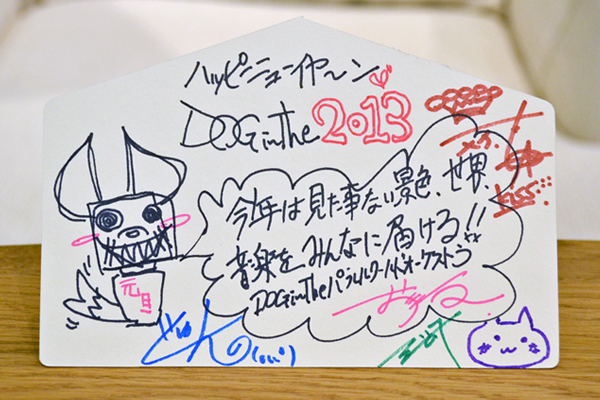 ハッピーニューイヤ〜ン
DOG inThe 2013
今年は見た事ない景色、世界、
音楽をみんなに届ける!!
DOG inTheパラレルワールドオーケストラ
元旦